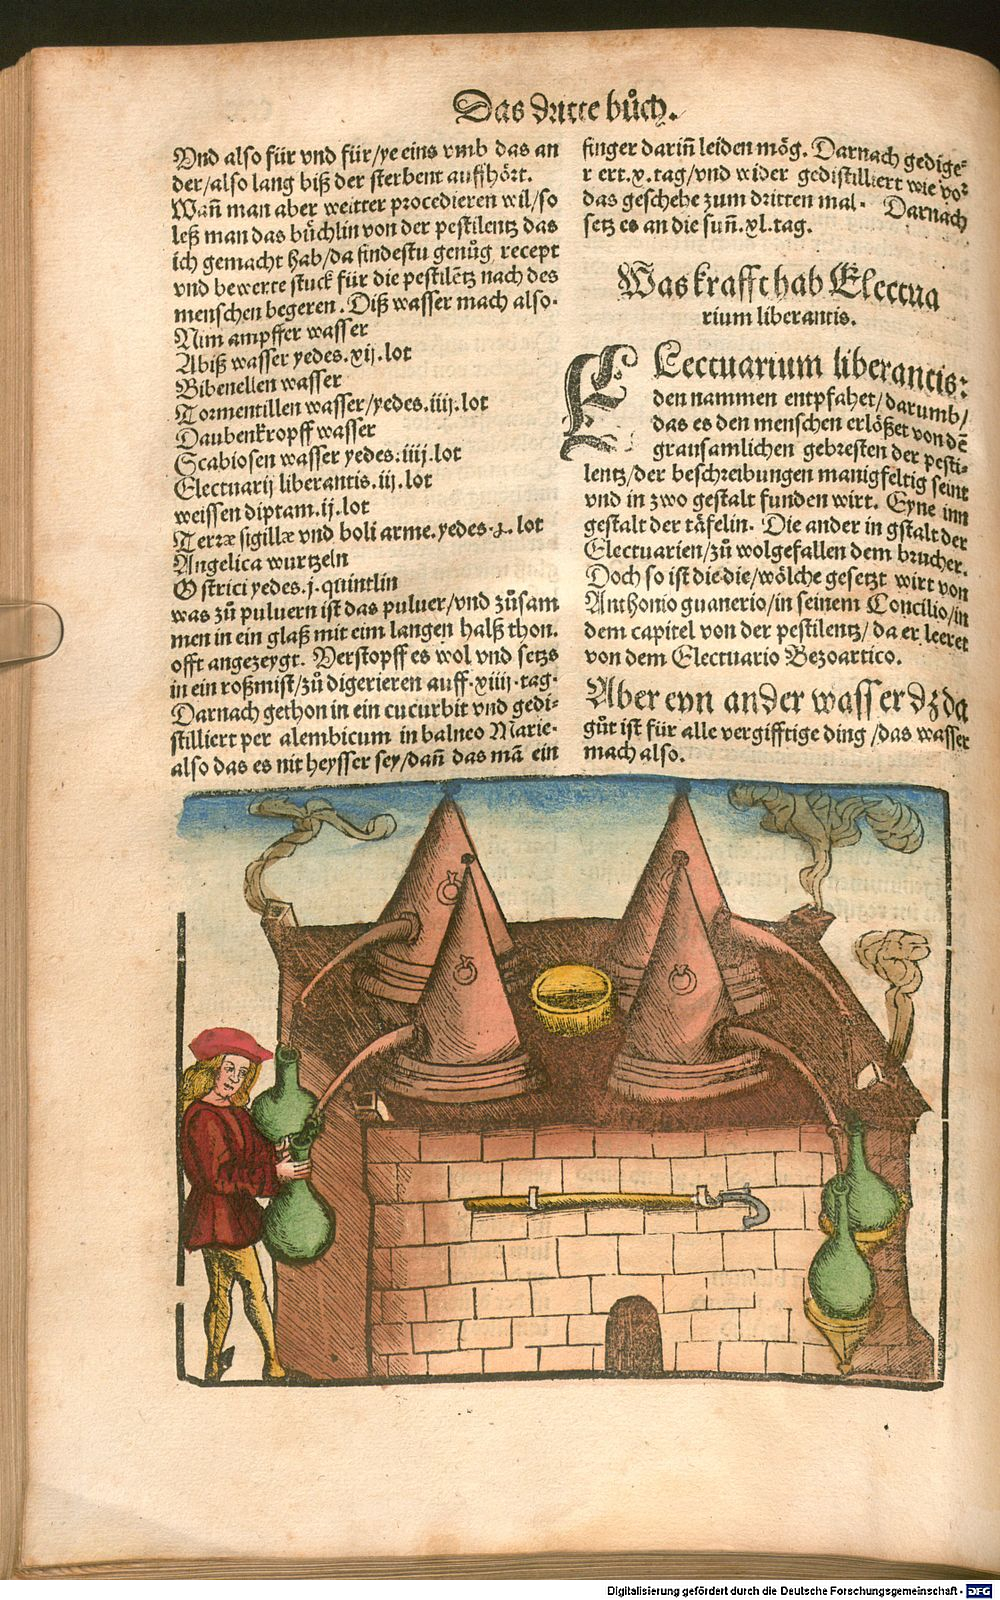 Das dritte bůch.
Vnd also für vnd für/ye eins vmb das an
der/also lang biß der sterbent auffhört.
Wañ man aber weitter procedieren wil/so
leß man das bůchlin von der pestilentz das
ich gemacht hab/da findestu genůg recept
vnd bewerte stuck für die pestilētz nach des
menschen begeren. Diß wasser mach also.
Nim ampffer wasser
Abiß wasser yedes.xij.lot
Bibenellen wasser
Tormentillen wasser/yedes.iiij.lot
Daubenkropff wasser
Scabiosen wasser yedes:iiij.lot
Electuarij liberantis.iij.lot
weissen diptam.ij.lot
Terræ sigillæ vnd boli arme.yedes. lot
Angelica wurtzeln
Ostrici yedes.j.quintlin
was zů puluern ist das puluer/vnd zůsam
men in ein glaß mit eim langen halß thon.
offt angezeygt. Verstopff es wol vnd setzs
in ein roßmist/zů digerieren auff.xiiij.tag.
Darnach gethon in ein cucurbit vnd gedi-
stilliert per alembicum in balneo Marie.
also das es nit heysser sey/dañ das mā ein
finger dariñ leiden mög. Darnach gedige-
r ert.x.tag/vnd wider gedistilliert wie vor
das geschehe zum dritten mal. Darnach
setz es an die suñ.xl.tag.
Was krafft hab Electua
rium liberantis.
ELectuarium liberantis:
den nammen entpfahet/darumb/
das es den menschen erlößet von dē
grausamlichen gebresten der pesti-
lentz/der beschreibungen manigfeltig seint
vnd in zwo gestalt funden wirt. Eyne inn
gestalt der täfelin. Die ander in gstalt der
Electuarien/zů wolgefallen dem brucher.
Doch so ist die die/wölche gesetzt wirt von
Anthonio guanerio/in seinem Concilio/in
dem capitel von der pestilentz/da er leeret
von dem Electuario Bezoartico.
Aber eyn ander wasser dz da
gůt ist für alle vergifftige ding/das wasser
mach also.
Digitalisierung gefördert durch die Deutsche Forschungsgemeinschaft - DFG